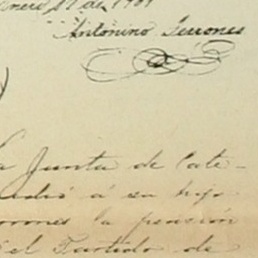 Enero 17 de 1901
Antonino Terrones
la Junta de Cate-
á su hijo
Terrones la pensión
el Partido de